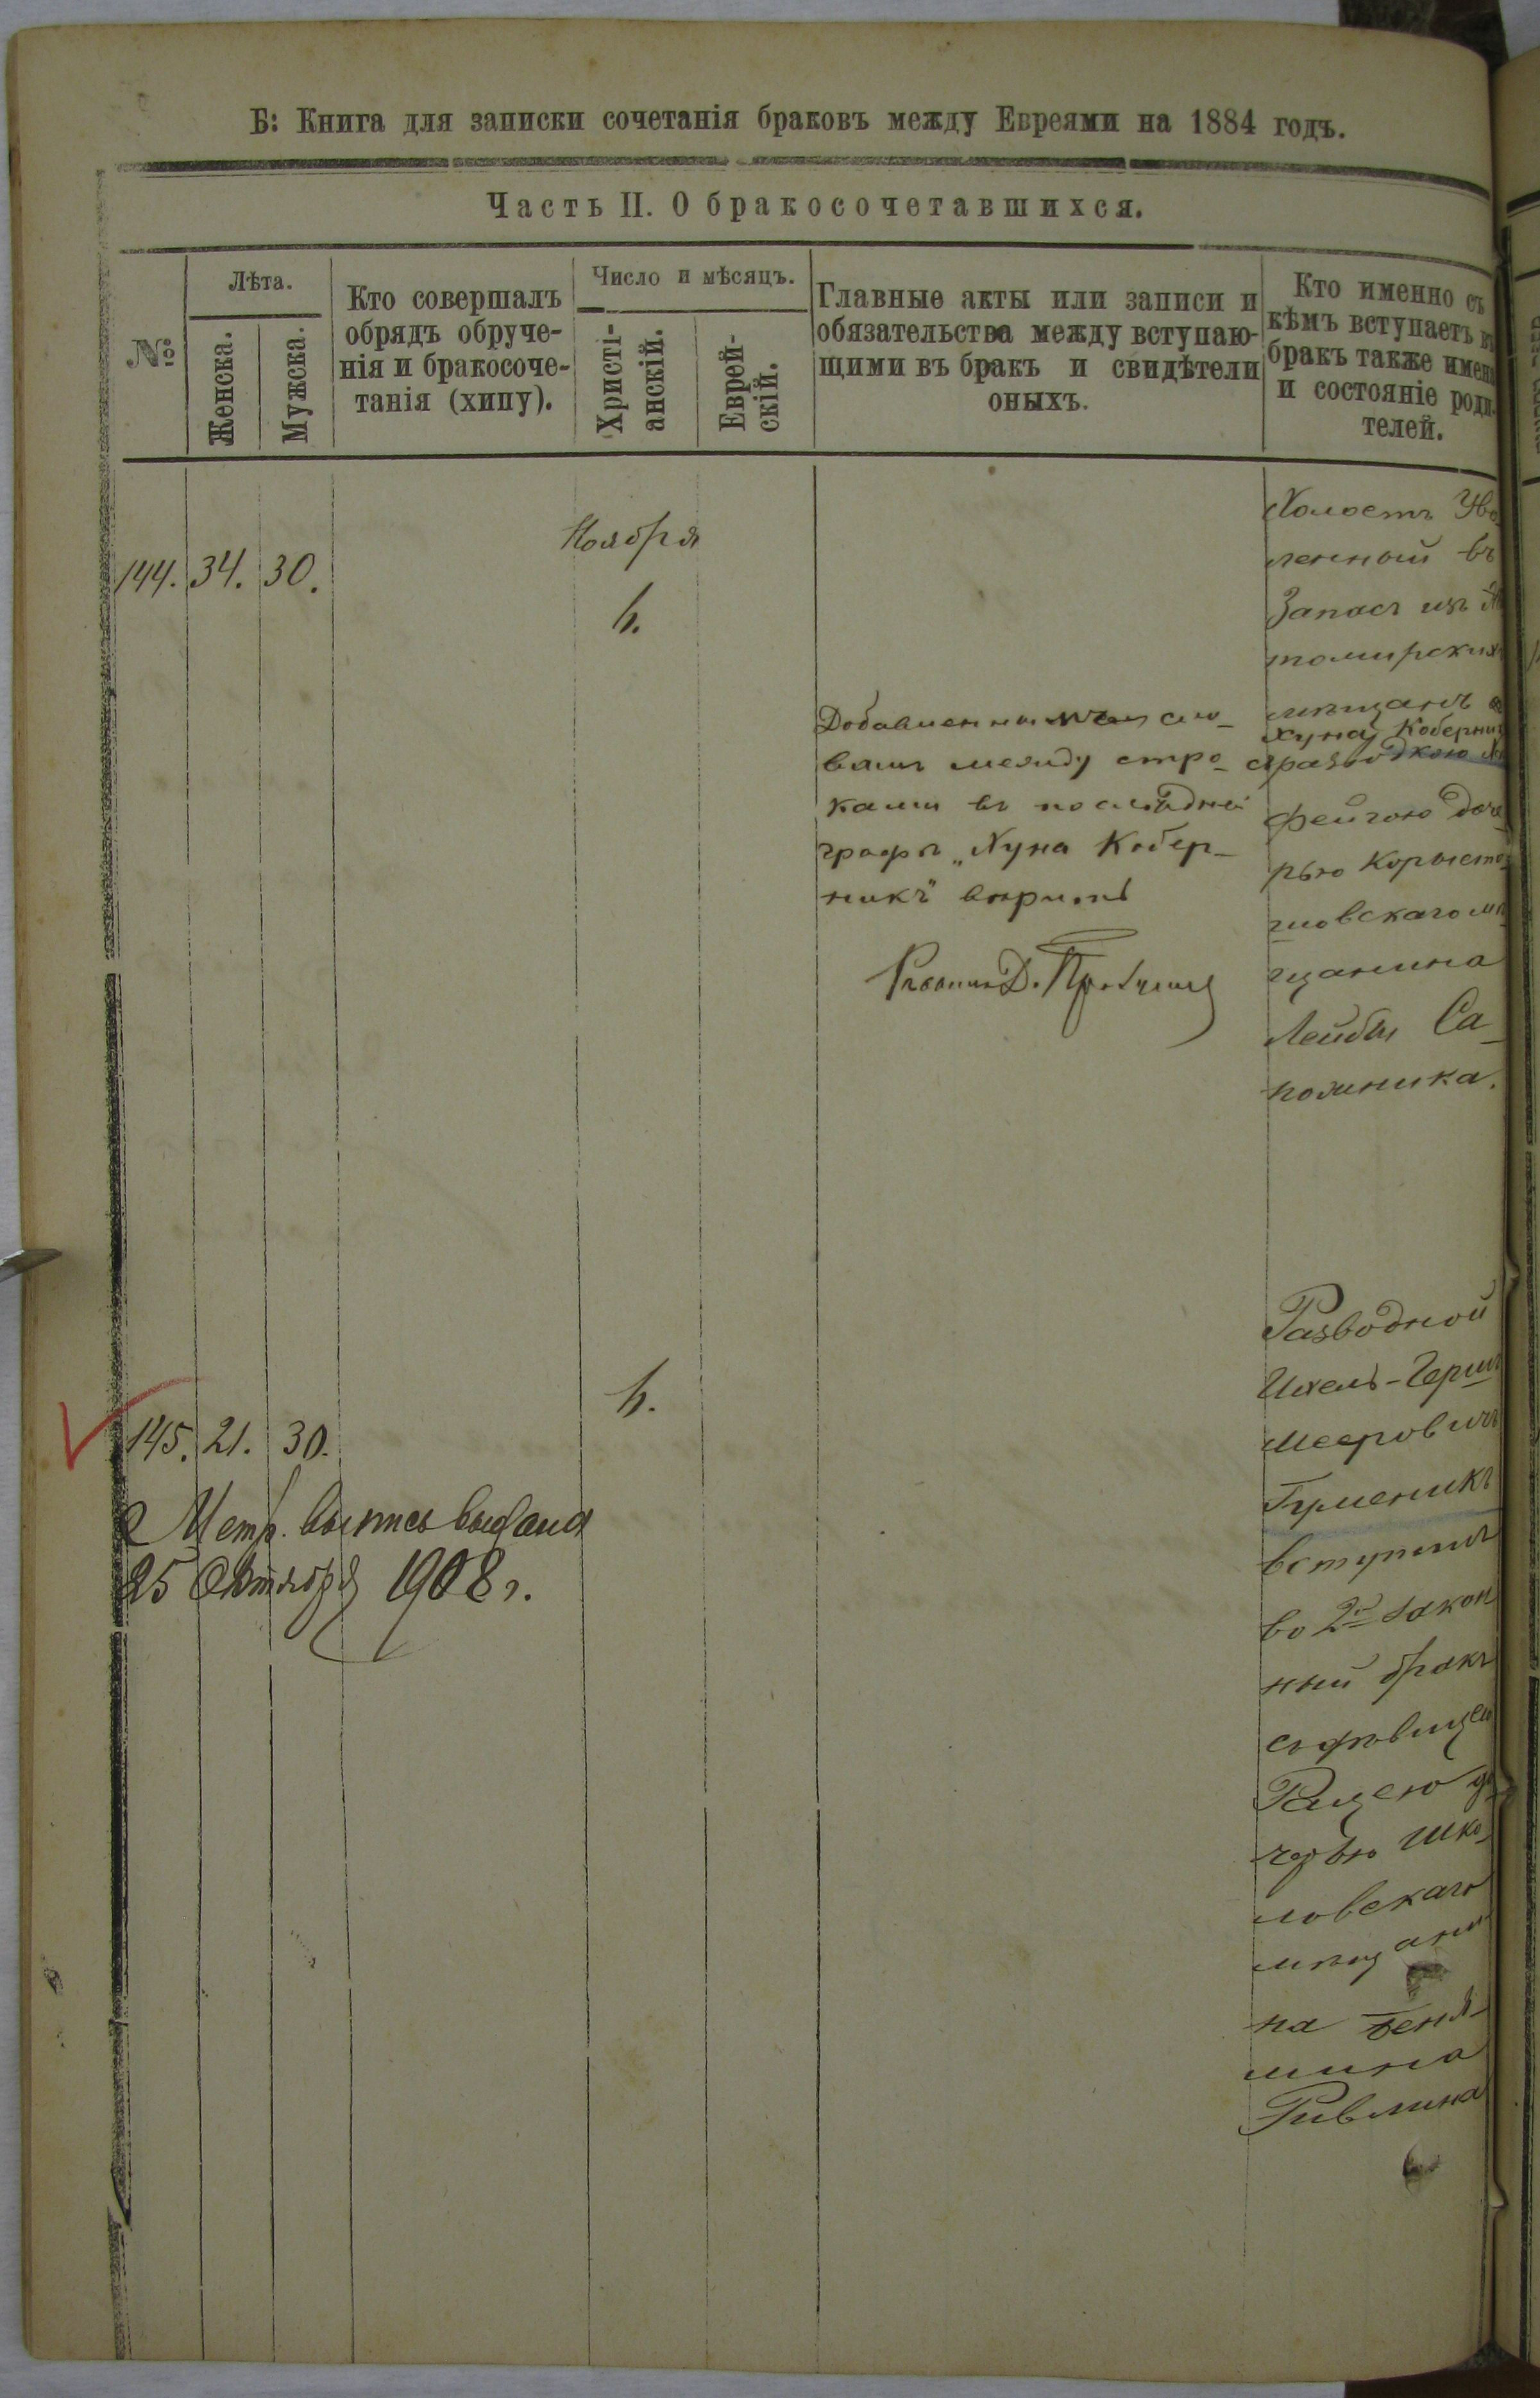 Б: Книга для записки сочетанія браковъ между Евреями на 1884 годъ.
Часть II. О бракосочетавшихся.
№
Лѣта.
Женска.
Мужска.
Кто совершалъ
обрядъ обруче-
нія и бракосоче-
танія (хипу).
Число и мѣсяцъ.
Христі-
анскій.
Еврей-
скій.
Главные акты или записи и
обязательства между вступаю-
щими въ бракъ и свидѣтели
оныхъ.
Кто именно съ
кѣмъ вступаетъ въ
бракъ также имена
и состояніе роди-
телей.
144. 34. 30.
Ноября
Добавленнымъ сло-
вамъ между стро-
ками въ послѣдней
графѣ „Хуна Кобер-
никъ" вѣрить
Д.
Холостъ Уво-
ленный въ
Запасъ изъ
томирскихъ
мѣщанъ
Хуна Коберник
съ разводкою
Фейгою доче-
рью Коросты-
шовскаго мѣ
щанина
Лейбы Са-
пожника.
145. 21. 30.
Метр. выпись выдана
25 Октября 1908 г.
Разводной
Ихель-Герш
Мееровичъ
Гуменикъ
вступилъ
во 2й закон
ный бракъ
съ дѣвицею
Рацею до
черью Шкло-
ловскаго
мѣщани
на Беня-
мина
Ривлина